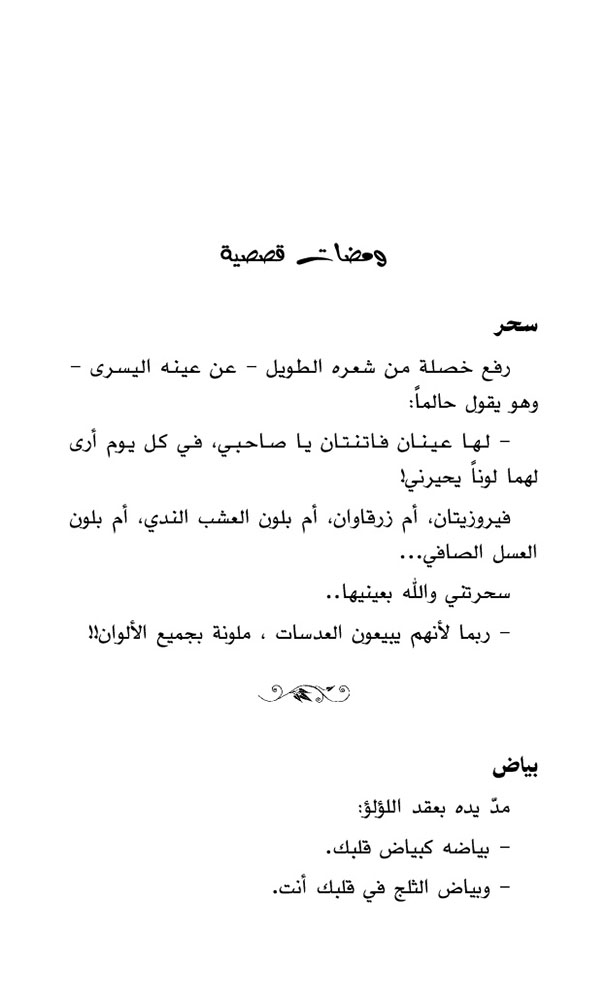 ومضات قصصية
سحر
رفع خصلة من شعره الطويل – عن عينه اليسرى –
وهو يقول حالماً:
– لها عينان فاتنتان يا صاحبي، في كل يوم أرى
لهما لوناً يحيرني!
فيروزيتان، أم زرقاوان، أم بلون العشب الندي، أم بلون
العسل الصافي...
سحرتني والله بعينيها..
– ربما لأنهم يبيعون العدسات ، ملونة بجميع الألوان!!
بياض
مدّ يده بعقد اللؤلؤ:
– بياضه كبياض قلبك.
– وبياض الثلج في قلبك أنت.